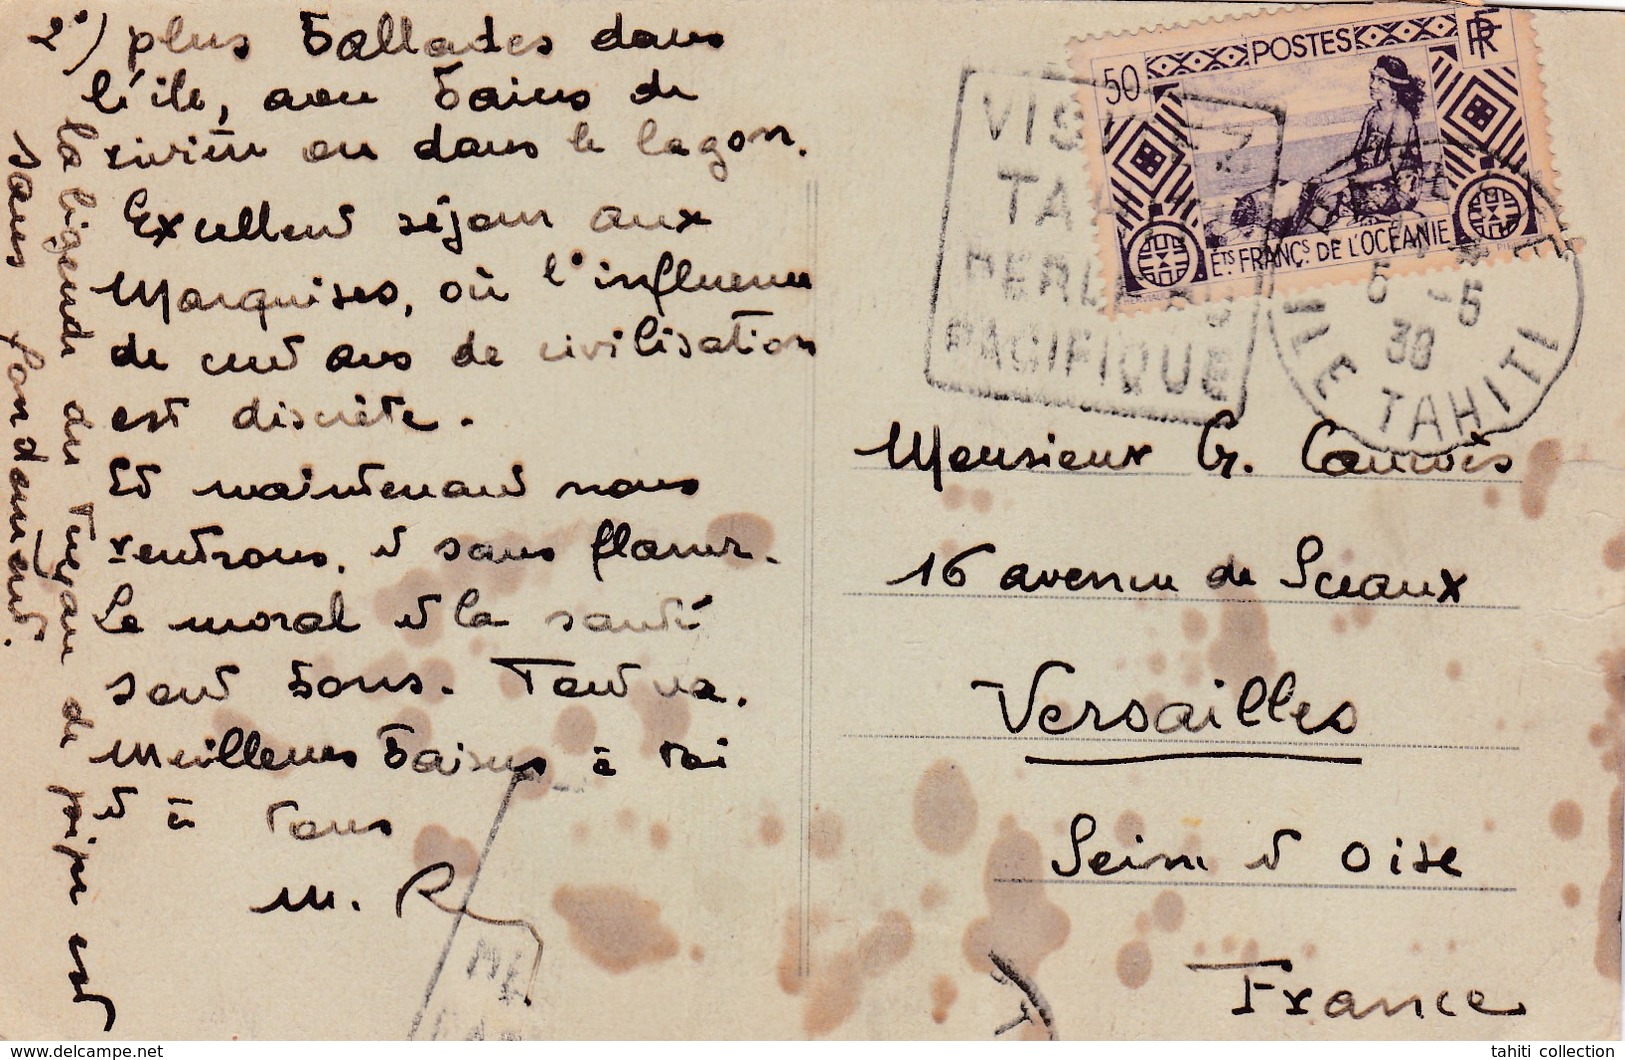 2°) plus ballades dans
l'île, avec bains de
rivière ou dans le lagon.
Excellent séjour aux
Marquises, où l'influence
de cent ans de civilisation
est discrète.
Et maintenant nous
rentrons, et sans flaner.
Le moral et la santé
sont bons. Tout va.
Meilleurs baisers à toi
et à tous
M. R
la légende du tuyau de pipe est
sans fondement.
50 POSTES RF
ETS FRANCS DE L'OCÉANIE
VISITEZ
TAHITI
PERLE DU
PACIFIQUE
6 -5
39
ILE TAHITI
Monsieur G.
16 avenue de Sceaux
Versailles
Seine et Oise
France
http://www.delcampe.net
tahiti collection